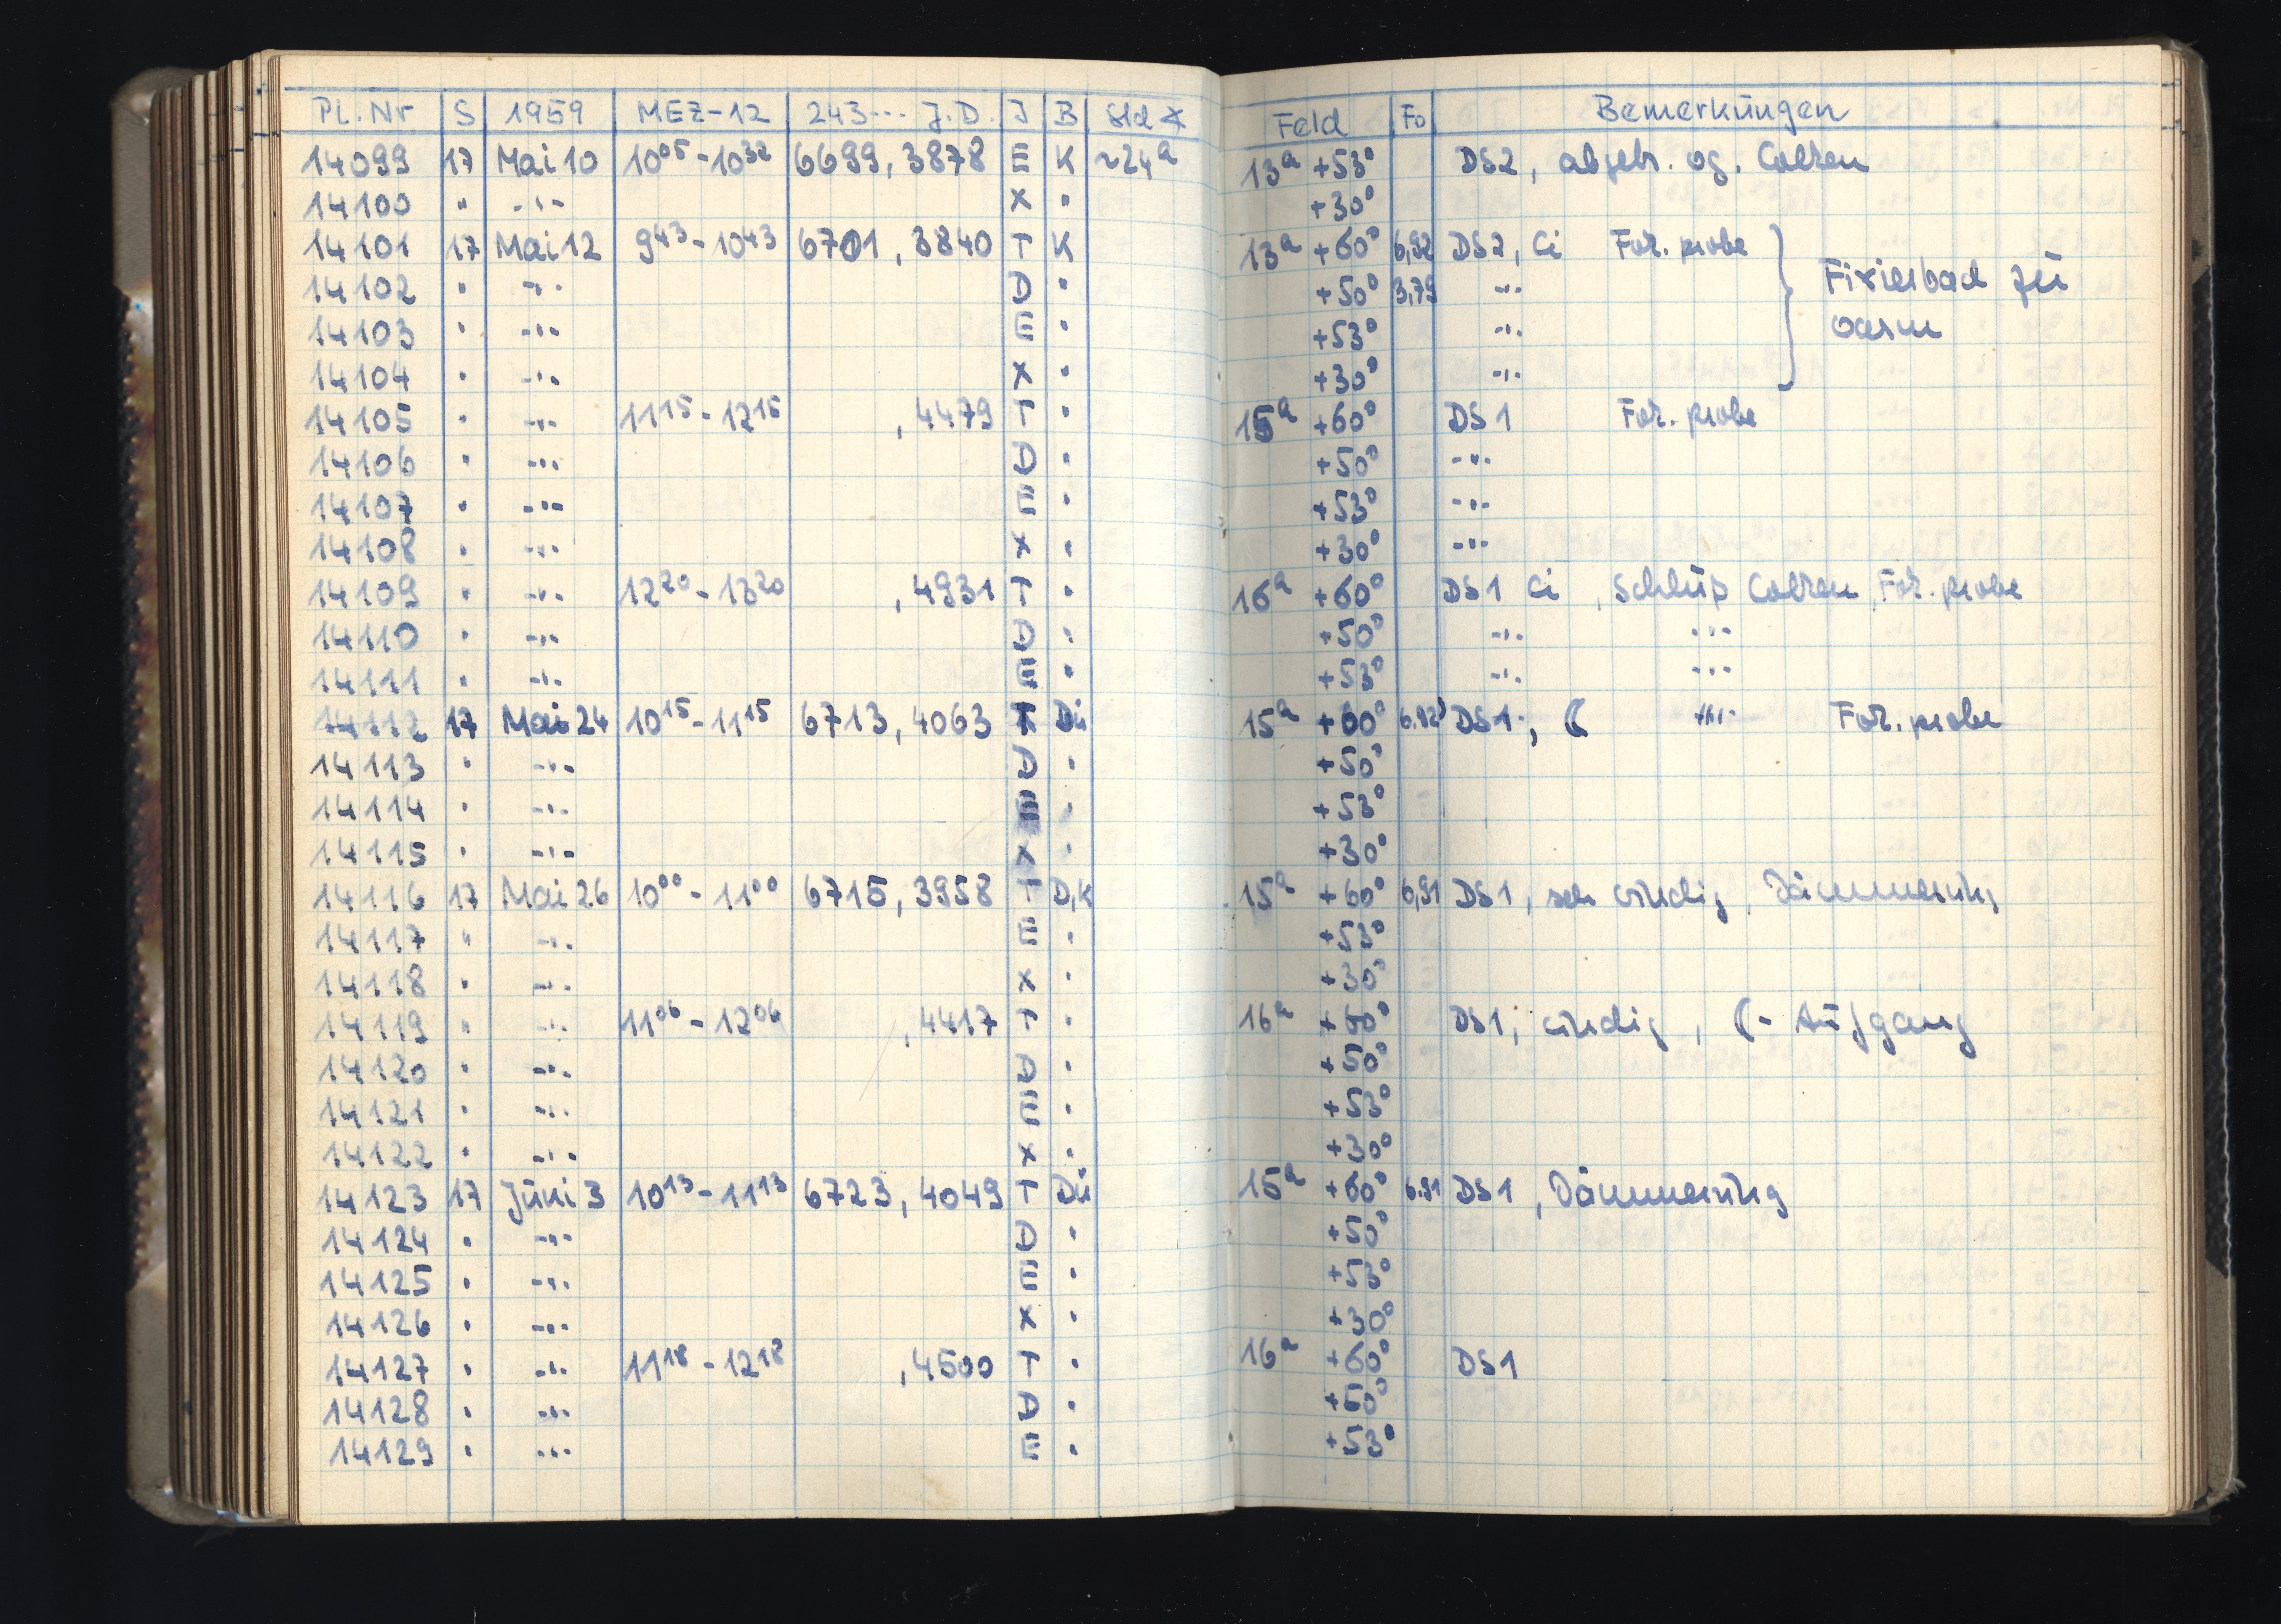 Pl. Nr S 1959 MEZ-12 243... J.D. J B Std Feld Fo Bemerkungen
14099 17 Mai 10 10⁰⁵-10³² 6699,3878 E K ~24ᵃ 13ᵃ +53° DS2, abgebr. wg. Wolken
14100 " -"- X " +30°
14101 17 Mai 12 9⁴³-10⁴³ 6701,3840 T K 13ᵃ +60° 6,92 DS2, Ci For. probe
14102 " -"- D " +50° 3,79 -"- Fixierbad zu
14103 " -"- E " +53° -"- warm
14104 " -"- X " +30° -"-
14105 " -"- 11¹⁵-12¹⁵ ,4479 T " 15ᵃ +60° DS1 For. probe
14106 " -"- D " +50° -"-
14107 " -"- E " +53° -"-
14108 " -"- X " +30° -"-
14109 " -"- 12²⁰-13²⁰ ,4931 T " 16ᵃ +60° DS1 Ci, Schluß Wolken, For. probe
14110 " -"- D " +50° -"- -"-
14111 " -"- E " +53° -"- -"-
14112 17 Mai 24 10¹⁵-11¹⁵ 6713,4063 T Dü 15ᵃ +60° 6,92 DS1, ☾ -"- For. probe
14113 " -"- D " +50°
14114 " -"- E " +53°
14115 " -"- X " +30°
14116 17 Mai 26 10⁰⁰-11⁰⁰ 6715,3958 T D,K 15ᵃ +60° 6,91 DS1, sehr windig, Dämmerung
14117 " -"- E " +53°
14118 " -"- X " +30°
14119 " -"- 11⁰⁶-12⁰⁶ ,4417 T " 16ᵃ +60° DS1, windig, ☾-Aufgang
14120 " -"- D " +50°
14121 " -"- E " +53°
14122 " -"- X " +30°
14123 17 Juni 3 10¹³-11¹³ 6723,4049 T Dü 15ᵃ +60° 6,91 DS1, Dämmerung
14124 " -"- D " +50°
14125 " -"- E " +53°
14126 " -"- X " +30°
14127 " -"- 11¹⁸-12¹⁸ ,4500 T " 16ᵃ +60° DS1
14128 " -"- D " +50°
14129 " -"- E " +53°